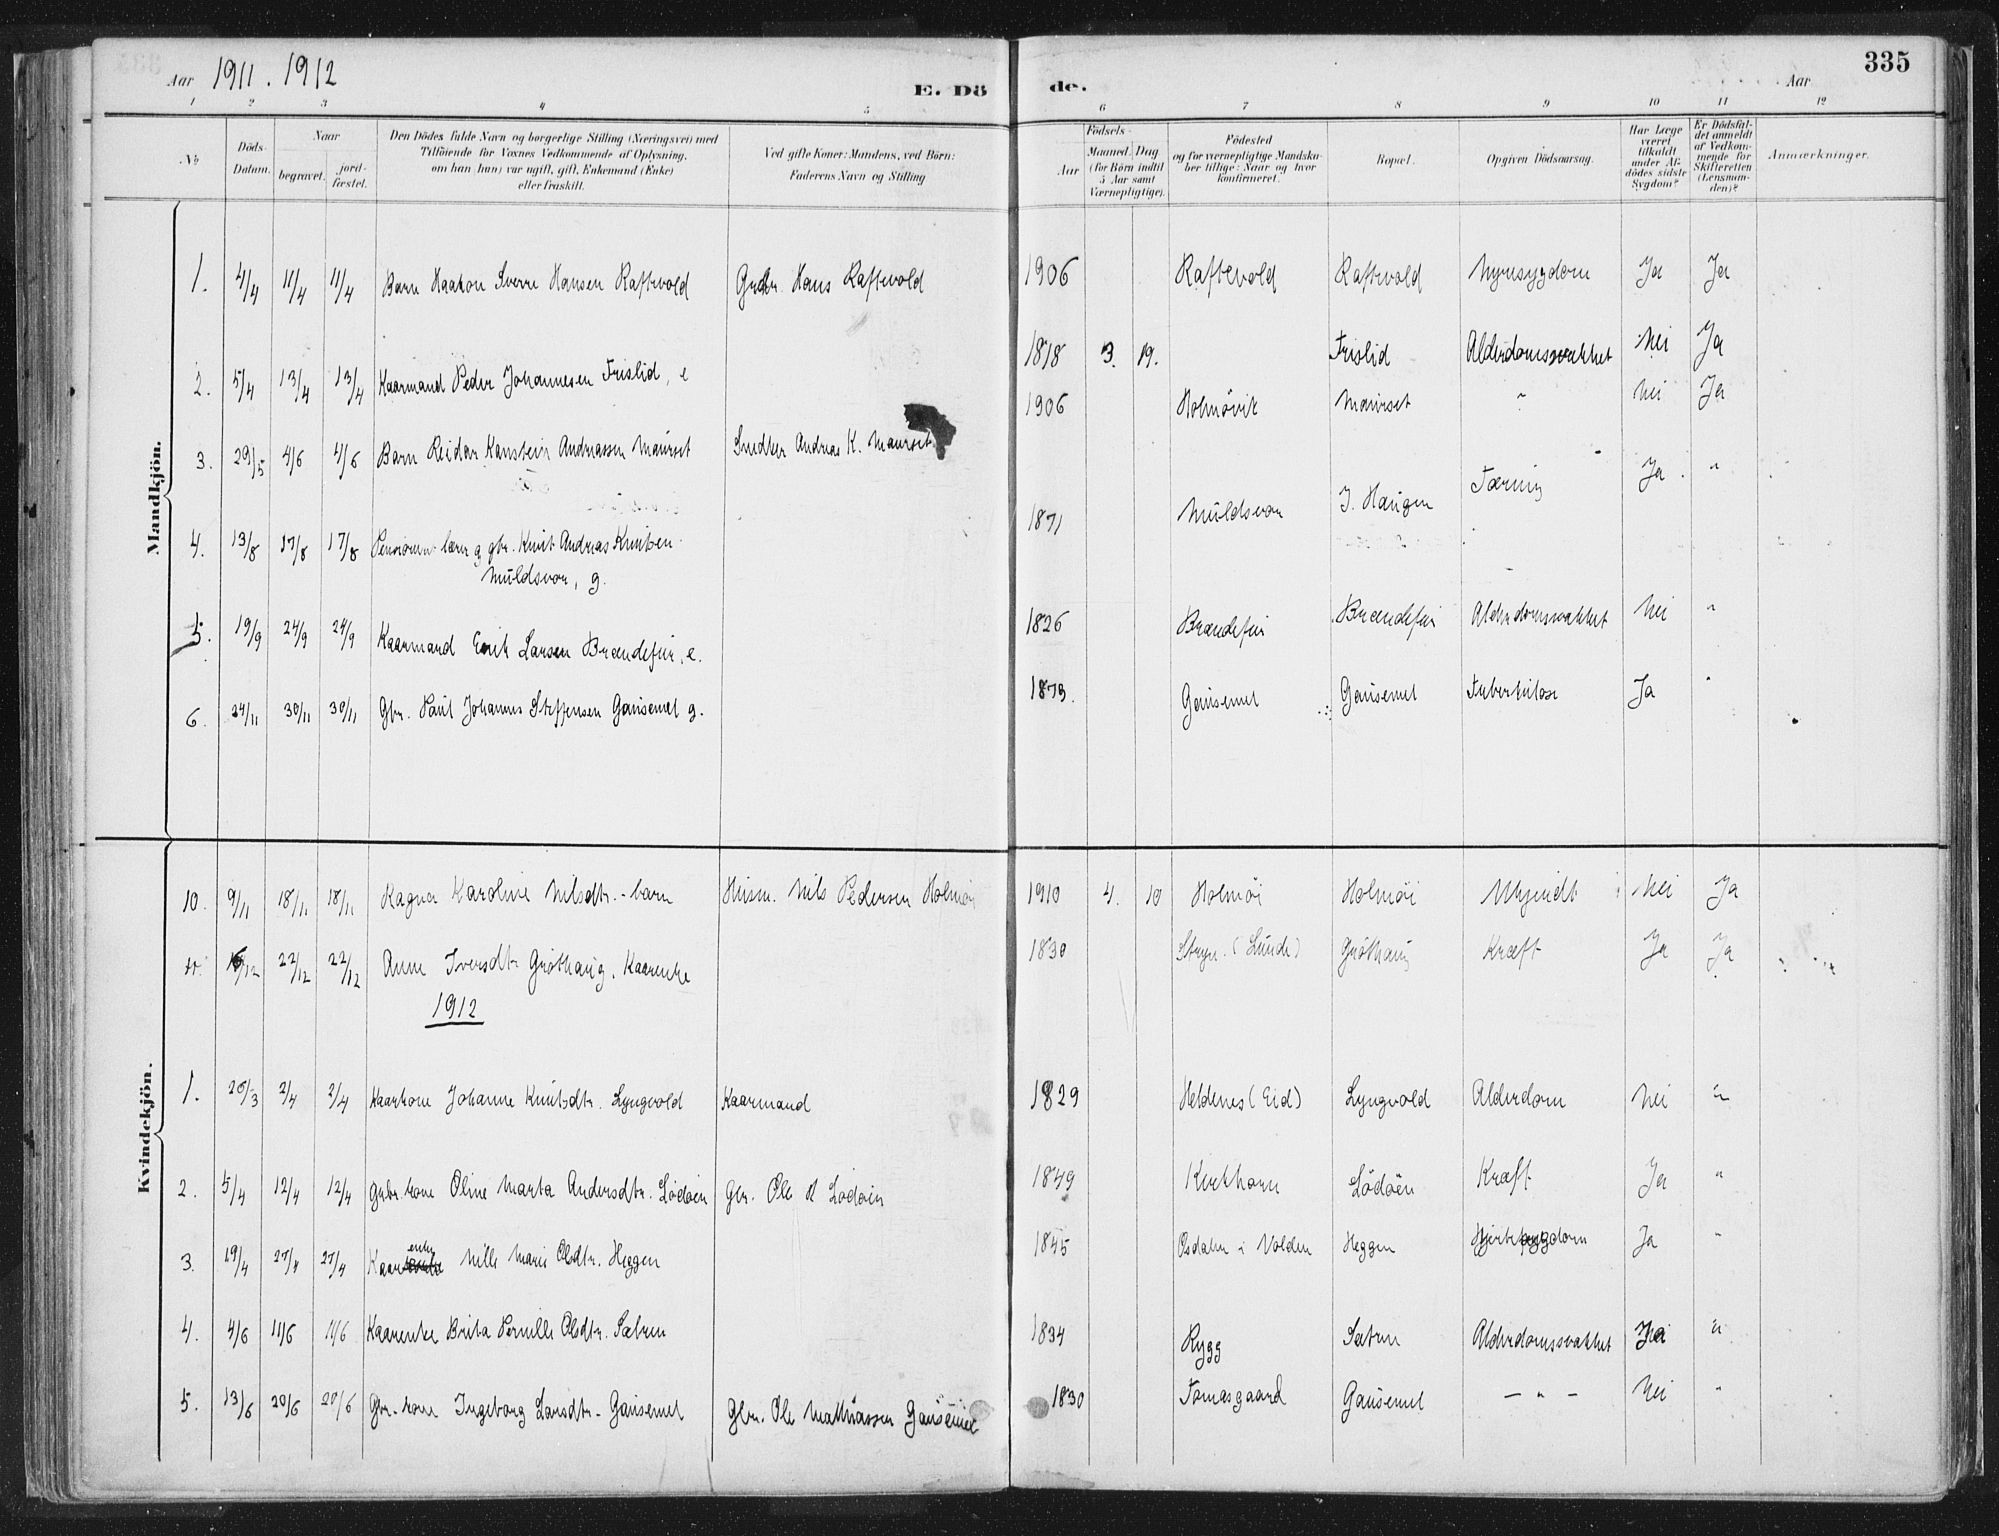 335
Aar 1911. 1912
E. Dö
de.
Aar
1 2 3 4 5 6 7 8 9 10 11 12
No
Döds-Datum.
Naar
begravet.
jord-fæstet.
Den Dödes fulde Navn og borgerlige Stilling (Næringsvei) med
Tilföiende for Voxnes Vedkommende af Oplysning,
om han (hun) var ugift, gift, Enkemand (Enke)
eller fraskilt.
Ved gifte Koner: Mandens, ved Börn:
Faderens Navn og Stilling
Födsels-
Aar
Maaned. Dag
(for Börn indtil
5 Aar samt
Værnepligtige).
Födested
og for værnepligtige Mandska-
ber tillige: Naar og hvor
konfirmeret.
Bopæl.
Opgiven Dödsaarsag.
Har Læge
været
tilkaldt
under Af-
dödes sidste
Sygdom?
Er Dödsfal-
det anmeldt
af Vedkom-
mende for
Skifteretten
(Lensman-
den)?
Anmærkninger.
Mandkjön.
1. 4/4 11/4 11/4 Barn Haakon Sverre Hansen Raftevold Gbr. Hans Raftevold 1906 Raftevold Raftevold Nyresygdom Ja Ja
2. 5/4 13/4 13/4 Kaarmand Peder Johannesen Frislid, e 1818 3. 19. Frislid Alderdomssvakhet Nei Ja
3. 29/5 4/6 4/6 Barn Reidar Kanstein Andreassen Maurset Snedker Andreas K. Maurset 1906 Holmövik Maurset " Nei Ja
4. 13/8 17/8 17/8 lærer og gbr. Knut Andreas Knutsen
Muldsvor, g. 1871 Muldsvor J. Haugen Tæring Ja "
5. 19/9 24/9 24/9 Kaarmand Erik Larsen Brændefur, e. 1826 Brændefur Brændefur Alderdomssvakhet Nei "
6. 24/11 30/11 30/11 Gbr. Paul Johannes Steffensen Gausemel g. 1879. Gausemel Gausemel Tuberkulose Ja "
Kvindekjön.
10. 9/11 18/11 18/11 Ragna Karoline Nilsdtr. - barn Husm. Nils Pedersen Holmöi 1910 4. 10 Holmöi Holmöi Ukjendt Nei Ja
11. /12 22/12 22/12 Anne Iversdtr. Gröthaug, Kaarenke 1830 Stryn. (Lunde) Gröthaug Kræft Ja Ja
1912
1. 26/3 2/4 2/4 Kaarkone Johanne Knutsdtr. Lyngvold Kaarmand 1829 Heldenes (Eid) Lyngvold Alderdom Nei "
2. 5/4 12/4 12/4 Gbr. kone Oline Marta Andersdtr. Lödöen Gbr. Ole Lödöen 1849 Kirkhorn Lödöen Kræft Ja "
3. 19/4 27/4 27/4 Kaarenke Nille Marie Olsdtr. Heggen 1845 Osdalen i Volden Heggen Hjertesygdom Ja "
4. 4/6 11/6 11/6 Kaarenke Brita Pernille Olsdtr. Sætren 1834 Rygg Sætren Alderdomssvakhet "
5. 13/6 20/6 20/6 Gbr.-kone Ingeborg Larsdtr. Gausemel Gbr. Ole Mathiassen Gausemel 1830 Tomasgaard Gausemel - " - Nei "